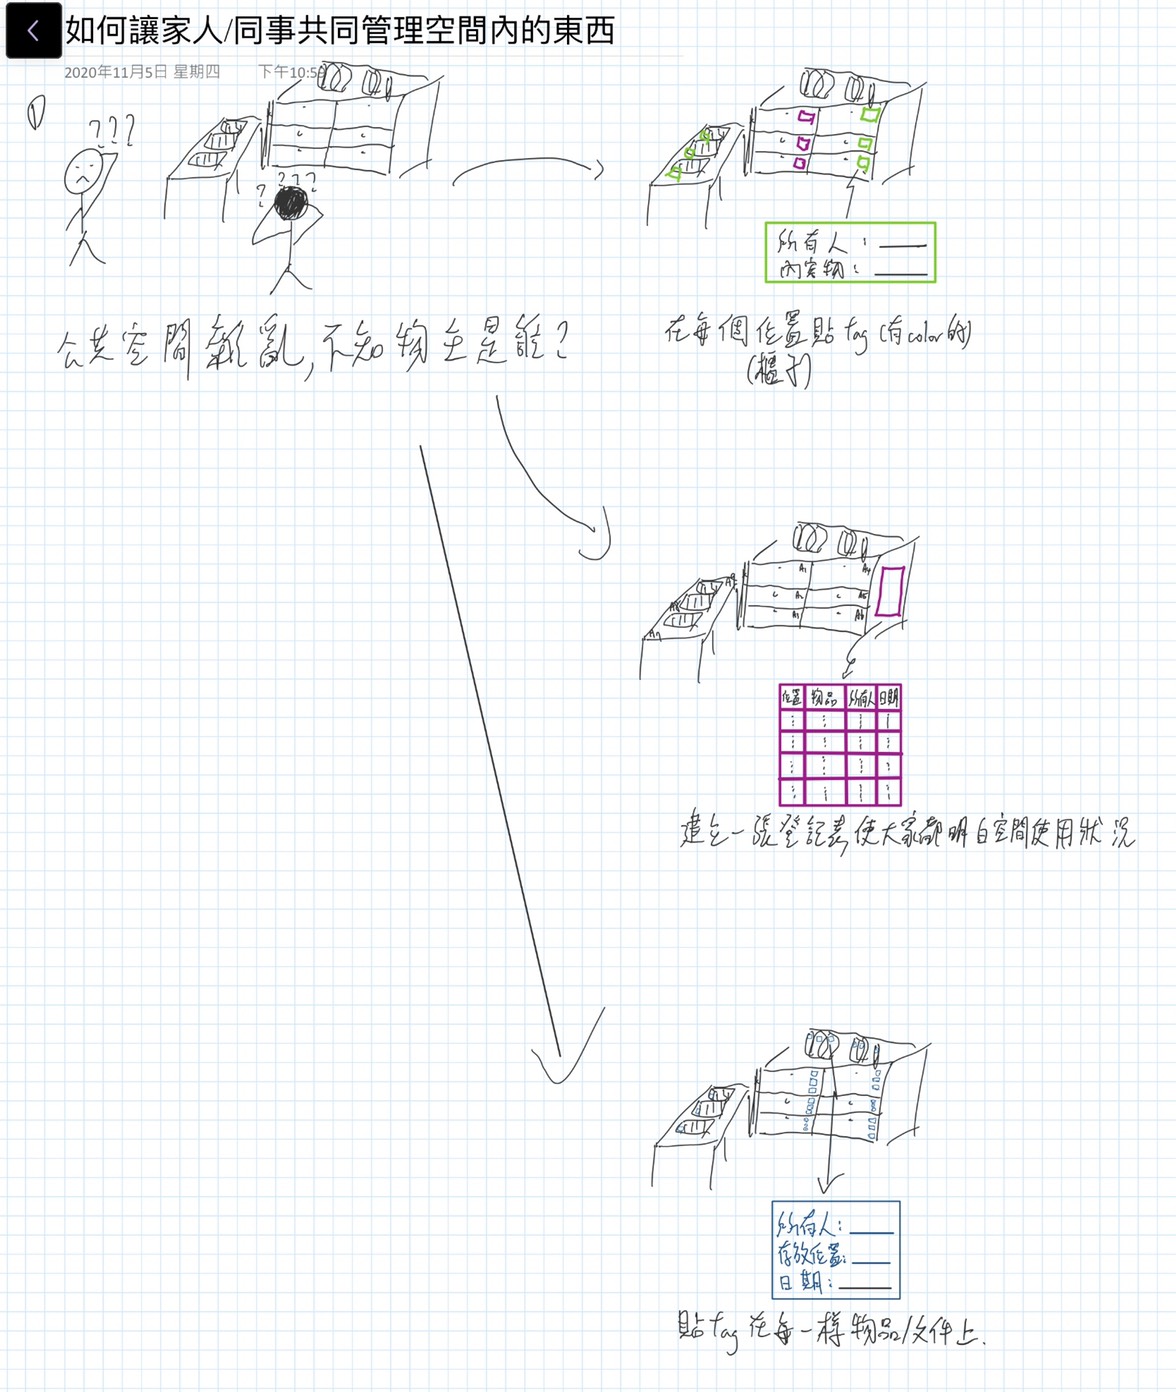 如何讓家人/同事共同管理空間內的東西
2020年11月5日 星期四 下午10:5
①
???
????
公共空間雜亂,不知物主是誰?
所有人:
內容物:
在每個位置貼tag(有color的)
(櫃子)
A1 A4
A2 A5
A6
A7
位置 物品 所有人 日期
建立一張登記表,使大家都明白空間使用狀況
所有人:
存放位置:
日期:
貼tag在每一樣物品/文件上.